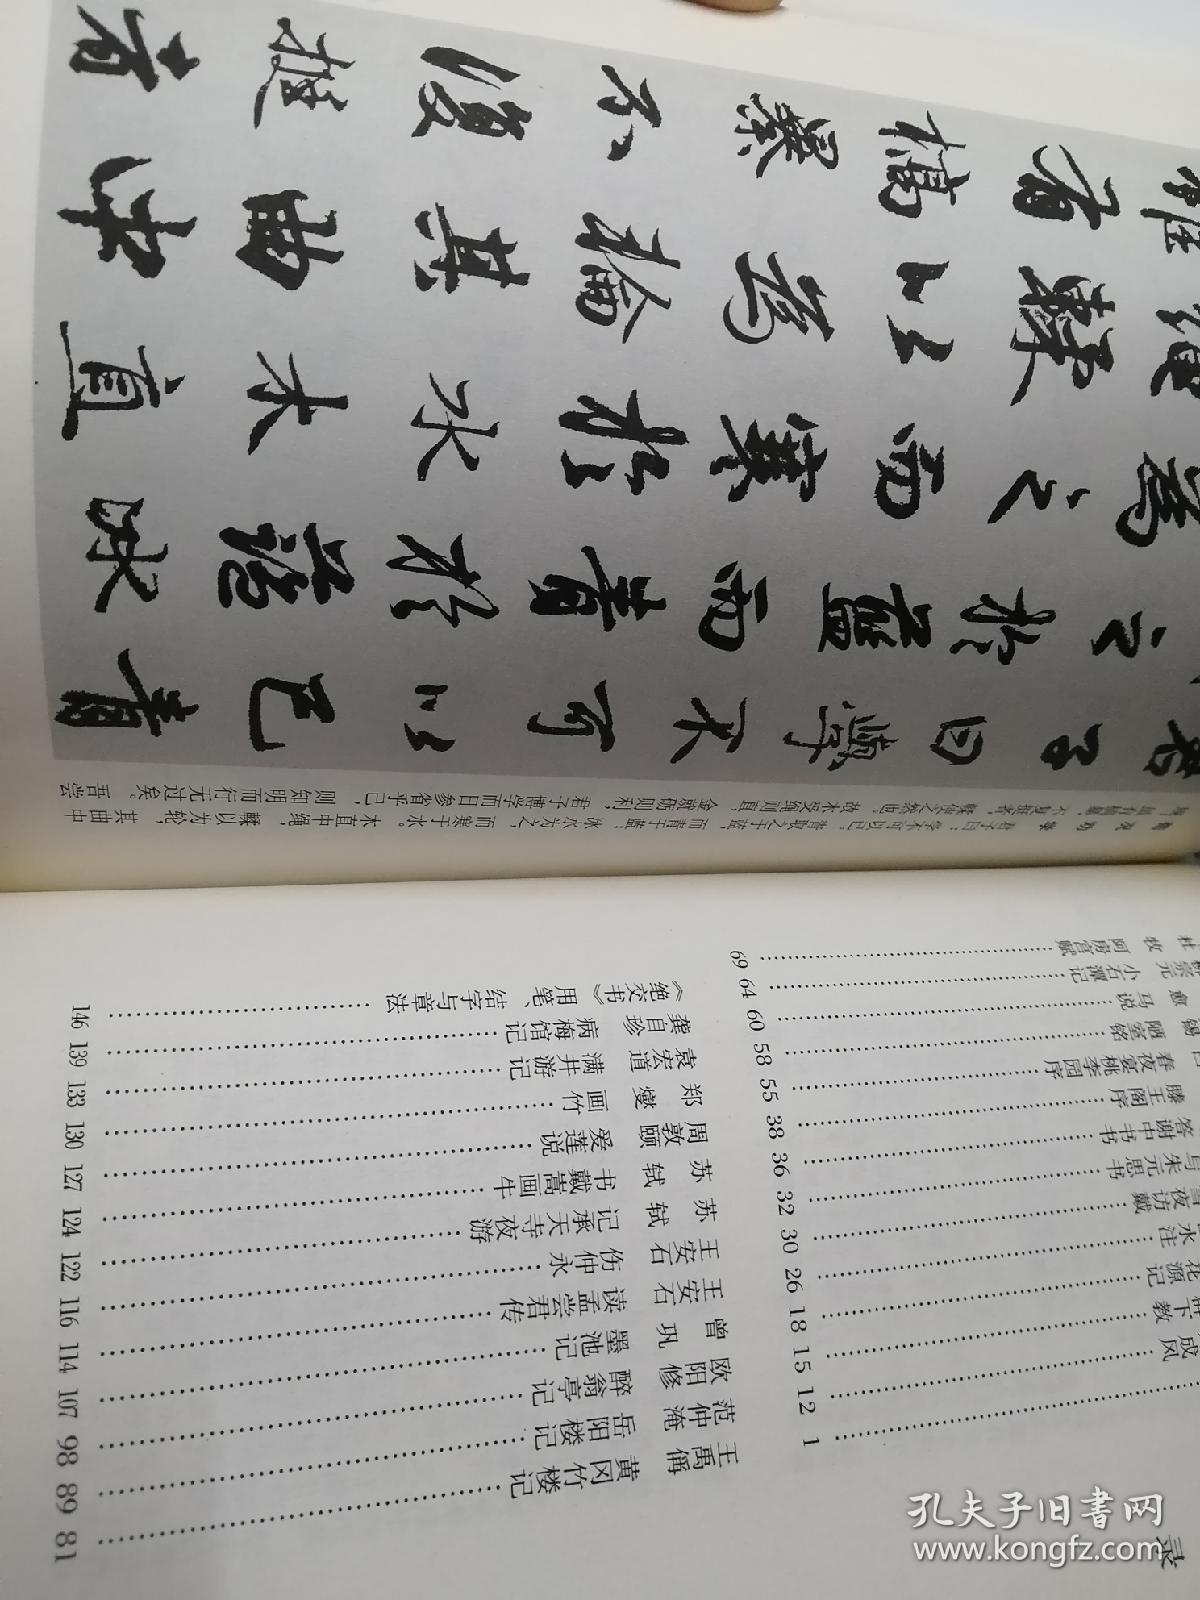 君子曰學不可以已青
之於藍而青於藍冰
為之而寒於水木直
繩輮以為輪其曲中
雖有槁暴不復挺者
荀况 劝学 君子曰：学不可以已。青取之于蓝，而青于蓝；冰水为之，而寒于水。木直中绳，輮以为轮，其曲中
规，虽有槁暴，不复挺者，輮使之然也。故木受绳则直，金就砺则利，君子博学而日参省乎己，则知明而行无过矣。吾尝
录
………… 1
成风 ………… 12
下教 ………… 15
花源记 ………… 18
水注 ………… 26
雪夜访戴 ………… 30
与朱元思书 ………… 32
答谢中书书 ………… 36
滕王阁序 ………… 38
春夜宴桃李园序 ………… 55
锡 陋室铭 ………… 58
愈 马说 ………… 60
宗元 小石潭记 ………… 64
杜牧 阿房宫赋 ………… 69
王禹偁 黄冈竹楼记 ………… 81
范仲淹 岳阳楼记 ………… 89
欧阳修 醉翁亭记 ………… 98
曾巩 墨池记 ………… 107
王安石 读孟尝君传 ………… 114
王安石 伤仲永 ………… 116
苏轼 记承天寺夜游 ………… 122
苏轼 书戴嵩画牛 ………… 124
周敦颐 爱莲说 ………… 127
郑燮 画竹 ………… 130
袁宏道 满井游记 ………… 133
龚自珍 病梅馆记 ………… 139
《绝交书》用笔、结字与章法 ………… 146
孔夫子旧书网
www.kongfz.com